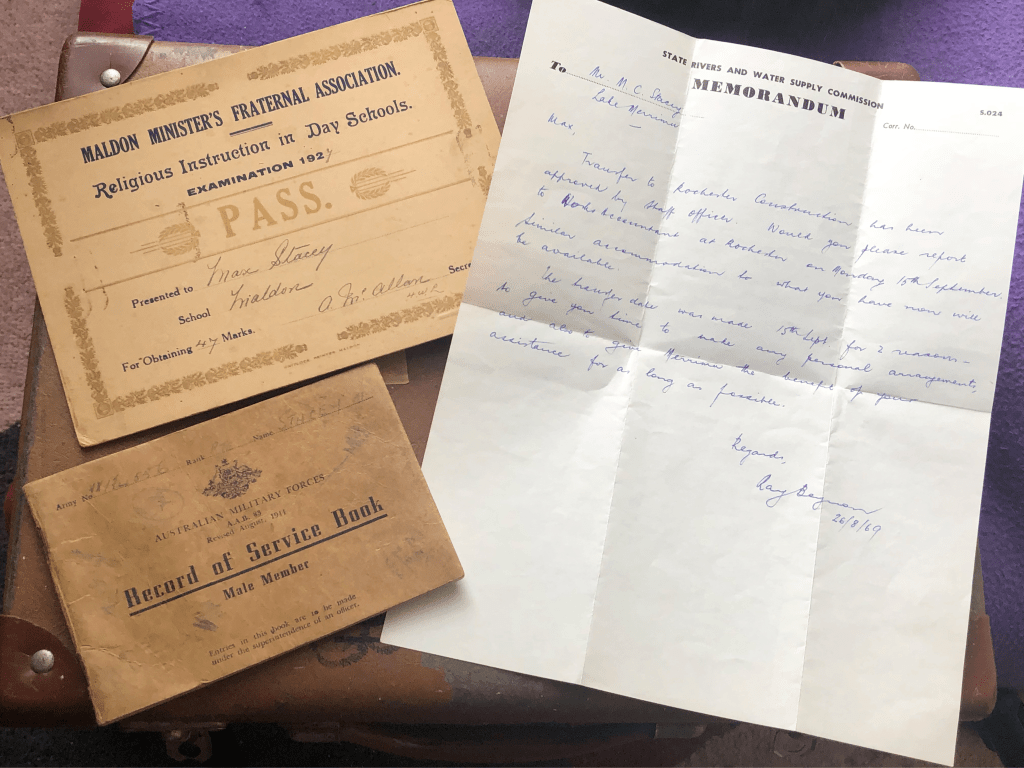 MALDON MINISTER'S FRATERNAL ASSOCIATION.
Religious Instruction in Day Schools.
EXAMINATION 1927
PASS.
Presented to Max Stacey
School Maldon
A. McAllan Secre
For Obtaining 47 Marks.
Army No. Rank Name
AUSTRALIAN MILITARY FORCES
A.A.B. 83
Revised August, 1941
Record of Service Book
Male Member
Entries in this book are to be made
under the superintendence of an officer.
STATE RIVERS AND WATER SUPPLY COMMISSION
S.024
MEMORANDUM
To Mr M. C. Stacey
Lake Merrimu
Corr. No.
Max,
Transfer to Rochester Construction has been
approved by Staff Officer. Would you please report
to Works Accountant at Rochester on Monday 15th September.
Similar accommodation to what you have now will
be available.
The transfer date was made 15th Sept for 2 reasons-
to give you time to make any personal arrangements,
and also to give Merrimu the benefit of your
assistance for as long as possible.
Regards,
Ray
26/8/69